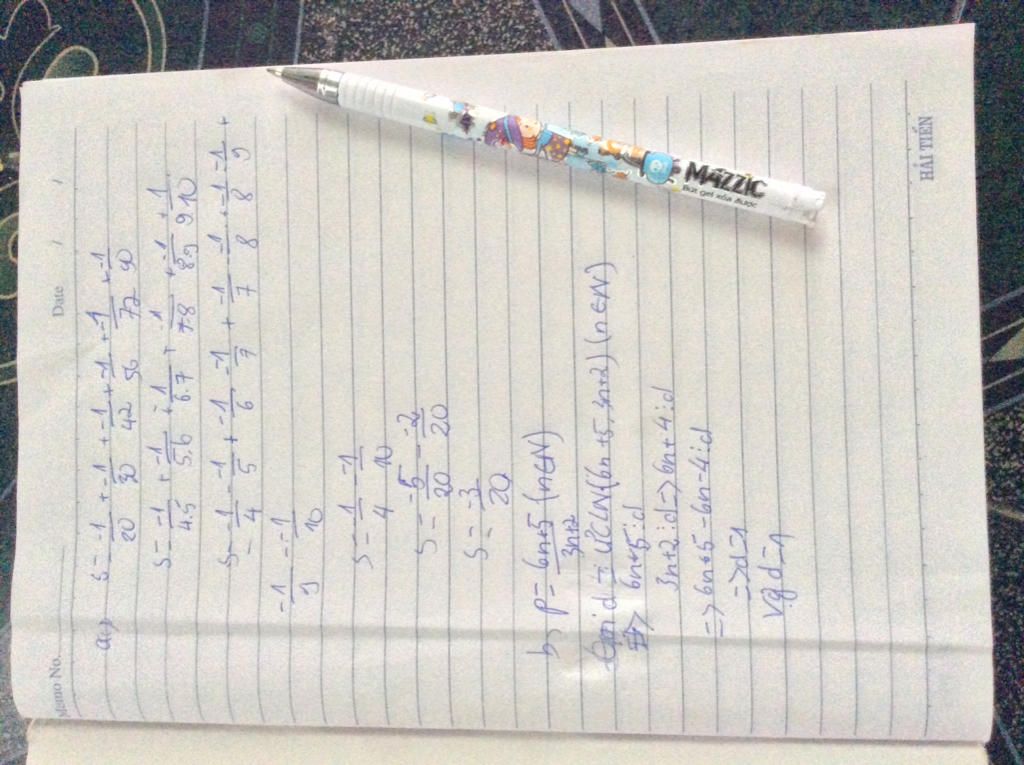 Memo No. Date / /
a,) S = -1/20 + -1/30 + -1/42 + -1/56 + -1/72 + -1/90
S = -1/4.5 + -1/5.6 + -1/6.7 + -1/7.8 + -1/8.9 + -1/9.10
S = -1/4 - -1/5 + -1/5 - -1/6 + -1/6 - -1/7 + -1/7 - -1/8 + -1/8 - -1/9 +
-1/9 - -1/10
S = -1/4 - -1/10
S = -5/20 - -2/20
S = -3/20
b, P = 6n+5/3n+2 (n∈N)
Gọi d = ƯCLN(6n+5, 3n+2) (n∈N)
=> 6n+5⋮d
3n+2⋮d => 6n+4⋮d
=> 6n+5-6n-4⋮d
=> d=1
Vậy d=1
HẢI TIẾN
MAZZIC
Bút gel xóa được